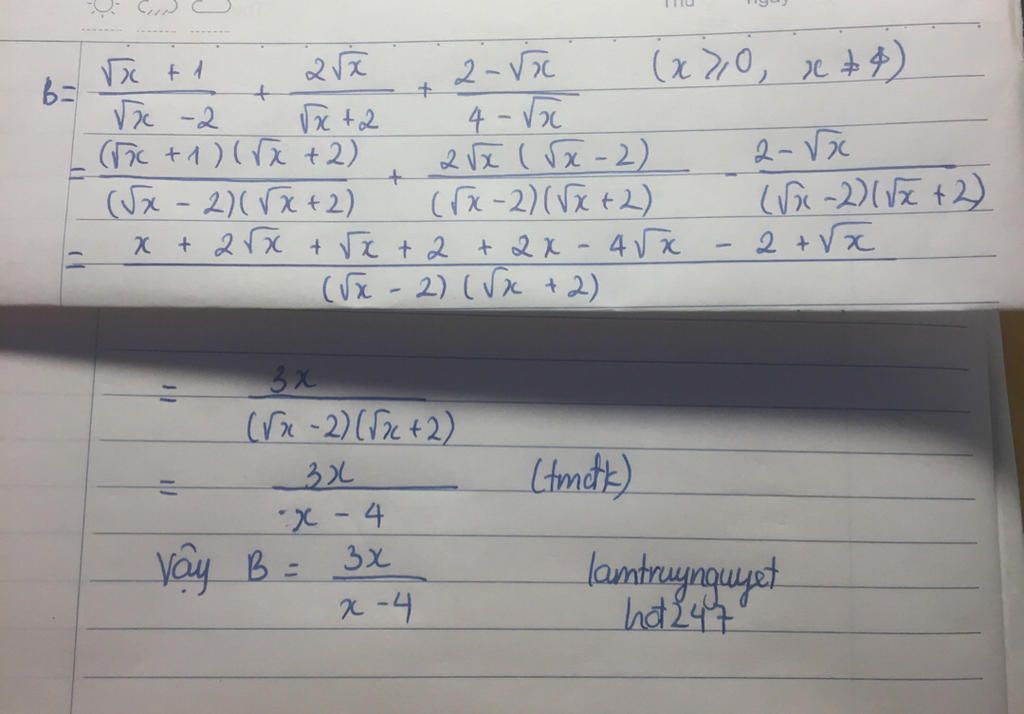 Thứ ngày
B = \frac{\sqrt{x} + 1}{\sqrt{x} - 2} + \frac{2\sqrt{x}}{\sqrt{x} + 2} + \frac{2 - \sqrt{x}}{4 - \sqrt{x}} (x ⩾ 0, x ≠ 4)
= \frac{(\sqrt{x} + 1)(\sqrt{x} + 2)}{(\sqrt{x} - 2)(\sqrt{x} + 2)} + \frac{2\sqrt{x}(\sqrt{x} - 2)}{(\sqrt{x} - 2)(\sqrt{x} + 2)} - \frac{2 - \sqrt{x}}{(\sqrt{x} - 2)(\sqrt{x} + 2)}
= \frac{x + 2\sqrt{x} + \sqrt{x} + 2 + 2x - 4\sqrt{x} - 2 + \sqrt{x}}{(\sqrt{x} - 2)(\sqrt{x} + 2)}
= \frac{3x}{(\sqrt{x} - 2)(\sqrt{x} + 2)}
= \frac{3x}{x - 4} (tmđk)
Vậy B = \frac{3x}{x - 4}
lamtruynguyet
hot247